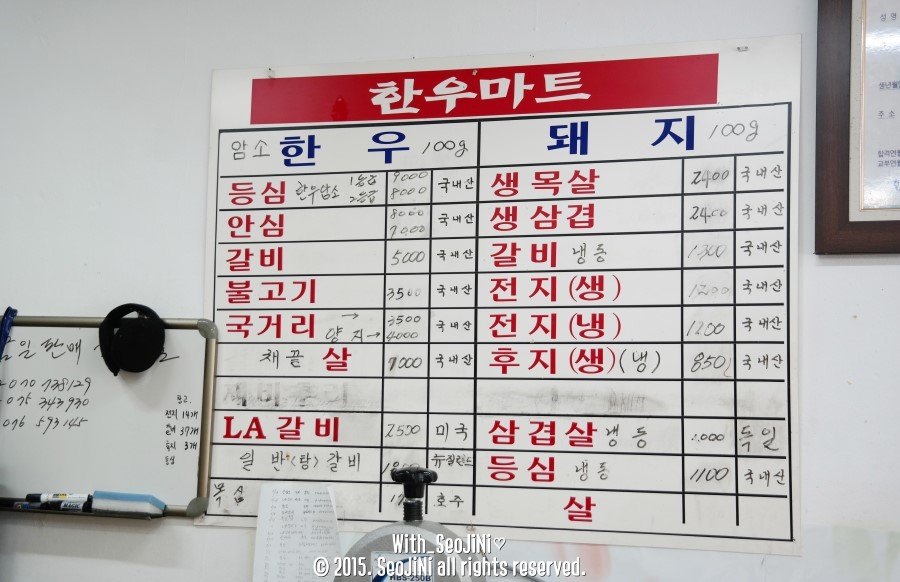 한우마트
암소 한우 100g
등심 한우암소 1등급 9000 국내산
2등급 8000
안심 8000 국내산
7000
갈비 5000 국내산
불고기 3500 국내산
국거리 → 3500 국내산
양지→ 4000
채끝 살 7000 국내산
LA갈비 2550 미국
일반(탕)갈비 뉴질랜드
목심 호주
돼지 100g
생목살 2400 국내산
생삼겹 2400 국내산
갈비 냉동 1300 국내산
전지(생) 1200 국내산
전지(냉) 1200 국내산
후지(생)(냉) 850 국내산
삼겹살 냉동 독일
등심 냉동 1100 국내산
살
일판매
010 738129
015 343930
016 593145
전지 14개
37개
3개
성명
생년월일
주소
HBS-250B
With_SeoJiNi♡
© 2015. SeoJiNi all rights reserved.